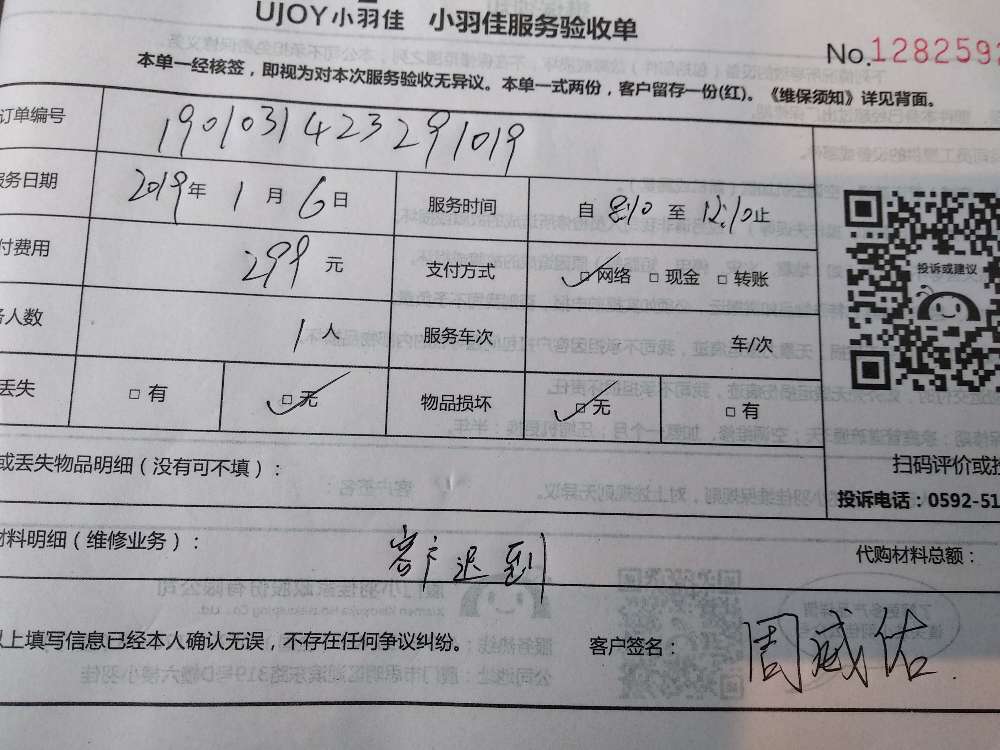 UJOY小羽佳 小羽佳服务验收单
No.1282592
本单一经核签，即视为对本次服务验收无异议。本单一式两份，客户留存一份(红)。《维保须知》详见背面。
订单编号 190103142329 1019
服务日期 2019年 1月 6日 服务时间 自 8:10 至 12:10止
付费用 299元 支付方式 □网络 □现金 □转账
务人数 1人 服务车次 车/次
丢失 □有 □无 物品损坏 □无 □有
投诉或建议
或丢失物品明细（没有可不填）：
扫码评价或投
投诉电话：0592-51
材料明细（维修业务）： 客户迟到 代购材料总额：
以上填写信息已经本人确认无误，不存在任何争议纠纷。 客户签名： 周威佑